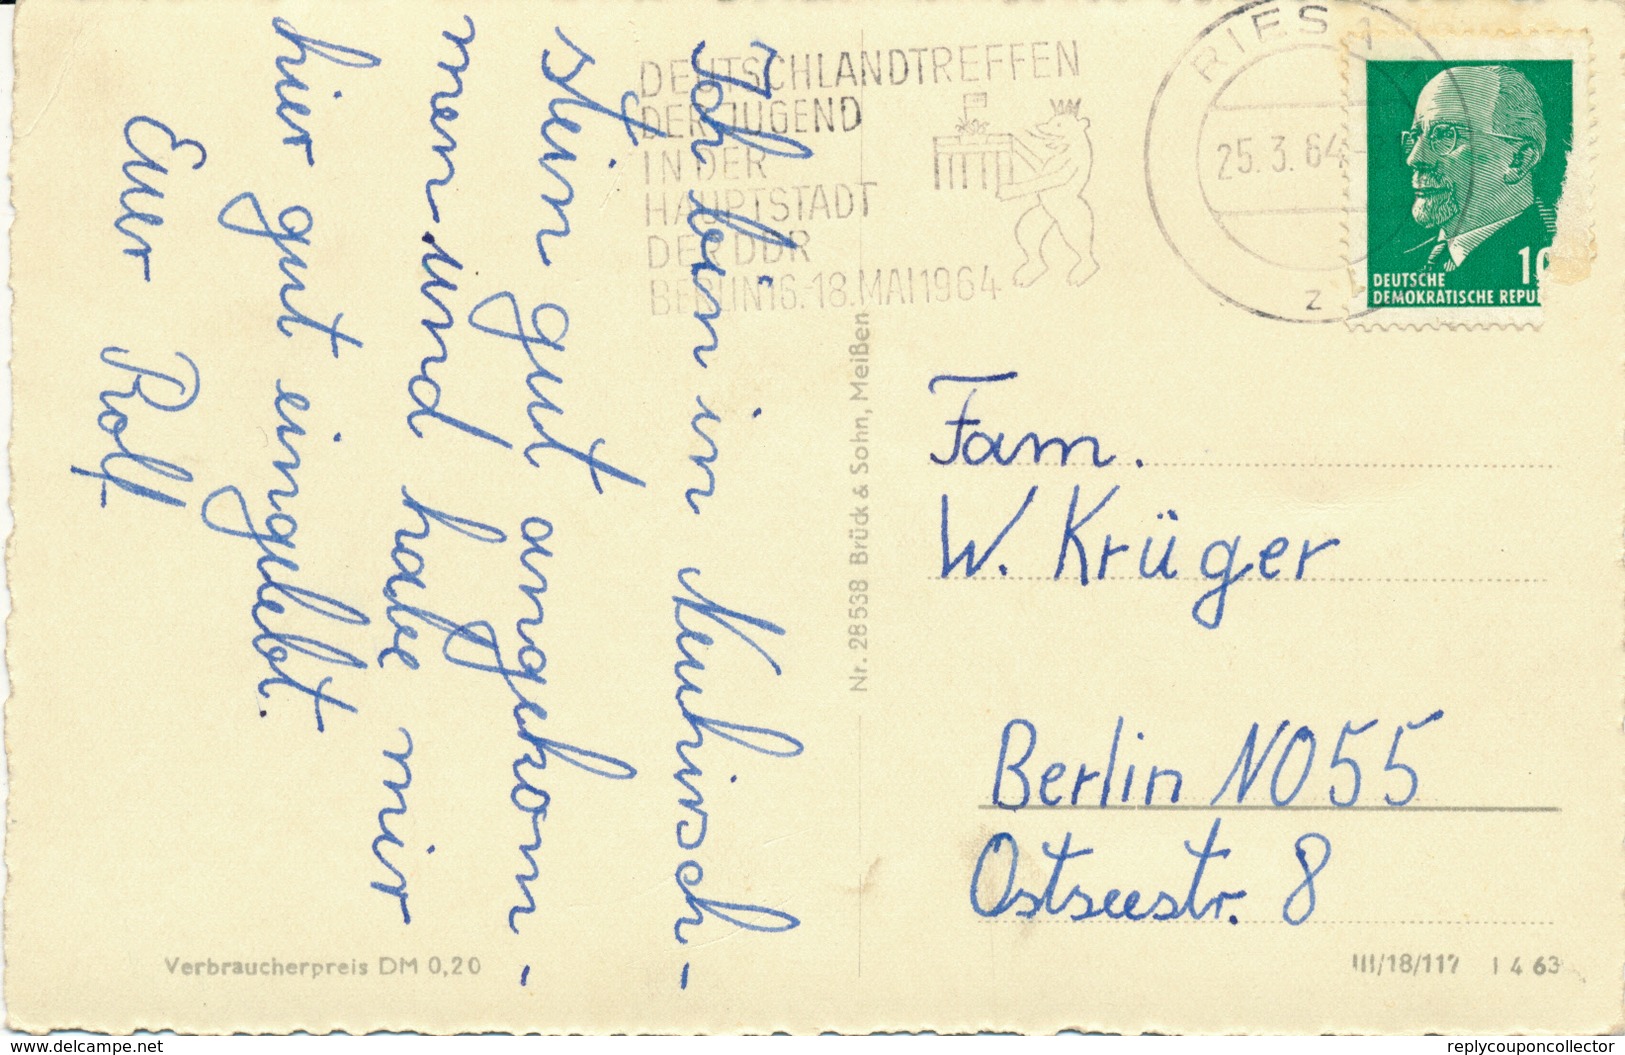 DEUTSCHLANDTREFFEN
DER JUGEND
IN DER
HAUPTSTADT
DER DDR
BERLIN 16.-18. MAI 1964
RIESA
25.3.64-
z
10
DEUTSCHE
DEMOKRATISCHE REPU
Ich bin in Neuhirsch-
stein gut angekom-
men und habe mir
hier gut eingelebt.
Euer Rolf
Nr. 28538 Brück & Sohn, Meißen
Fam.
W. Krüger
Berlin NO55
Ostseestr. 8
Verbraucherpreis DM 0,20
III/18/117 I 4 63
www.delcampe.net
replycouponcollector